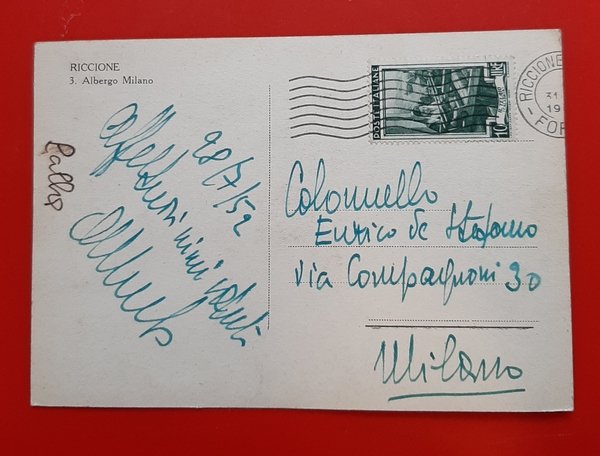 RICCIONE
3. Albergo Milano
28/7/52
Affettuosissimi saluti
POSTE ITALIANE
10
LIRE
RICCIONE
31.
19
FOR
Colonnello
Enrico de Stefano
via Compagnoni 30
Milano